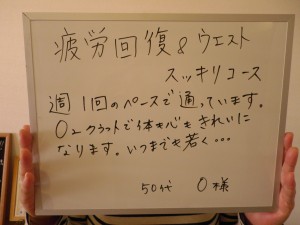 疲労回復&ウエスト
スッキリコース
週1回のペースで通っています。
で体も心もきれいに
なります。いつまでも若く…
50代 O様